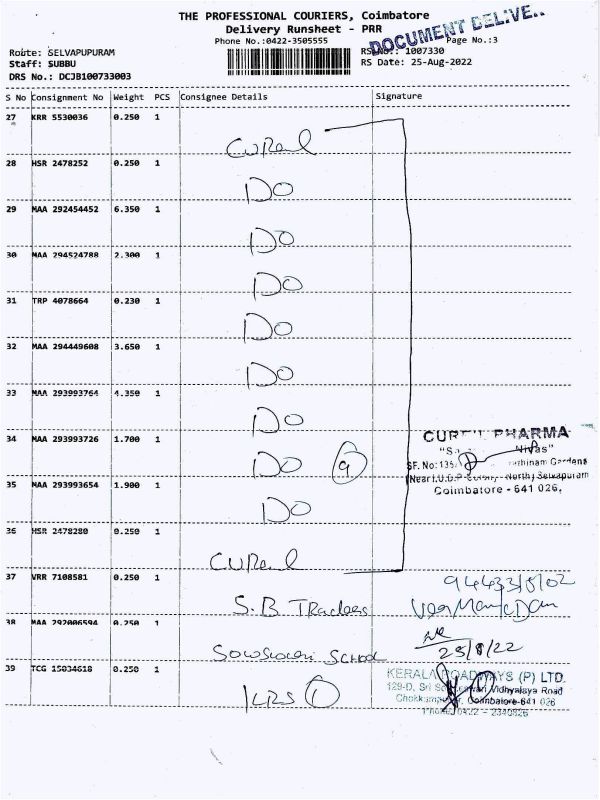 THE PROFESSIONAL COURIERS, Coimbatore
Delivery Runsheet - PRR
DOCUMENT DELIVE
Phone No.:0422-3505555
Page No.:3
Route: SELVAPUPURAM
RS No.: 1007330
Staff: SUBBU
RS Date: 25-Aug-2022
DRS No.: DCJB100733003
S No Consignment No Weight PCS Consignee Details Signature
27 KRR 5530036 0.250 1
CURewl
28 HSR 2478252 0.250 1
DO
29 MAA 292454452 6.350 1
DO
30 MAA 294524788 2.300 1
DO
31 TRP 4078664 0.230 1
DO
32 MAA 294449608 3.650 1
DO
33 MAA 293993764 4.350 1
DO
34 MAA 293993726 1.700 1
DO 9
35 MAA 293993654 1.900 1
DO
PHARMA
Nivas"
SF. No: 135 Gardens
(Near I.U.D.P Colony North) Selvapuram
Coimbatore - 641 026.
36 HSR 2478280 0.250 1
CURewl
37 VRR 7108581 0.250 1
S.B Traders
38 MAA 292006594 0.250 1
School
25/8/22
39 TCG 15034618 0.250 1
KRS 1
KERALA ROADWAYS (P) LTD.
129-D, Sri Vidhyalaya Road
Coimbatore-641 026
Phone: 0422 - 2340826